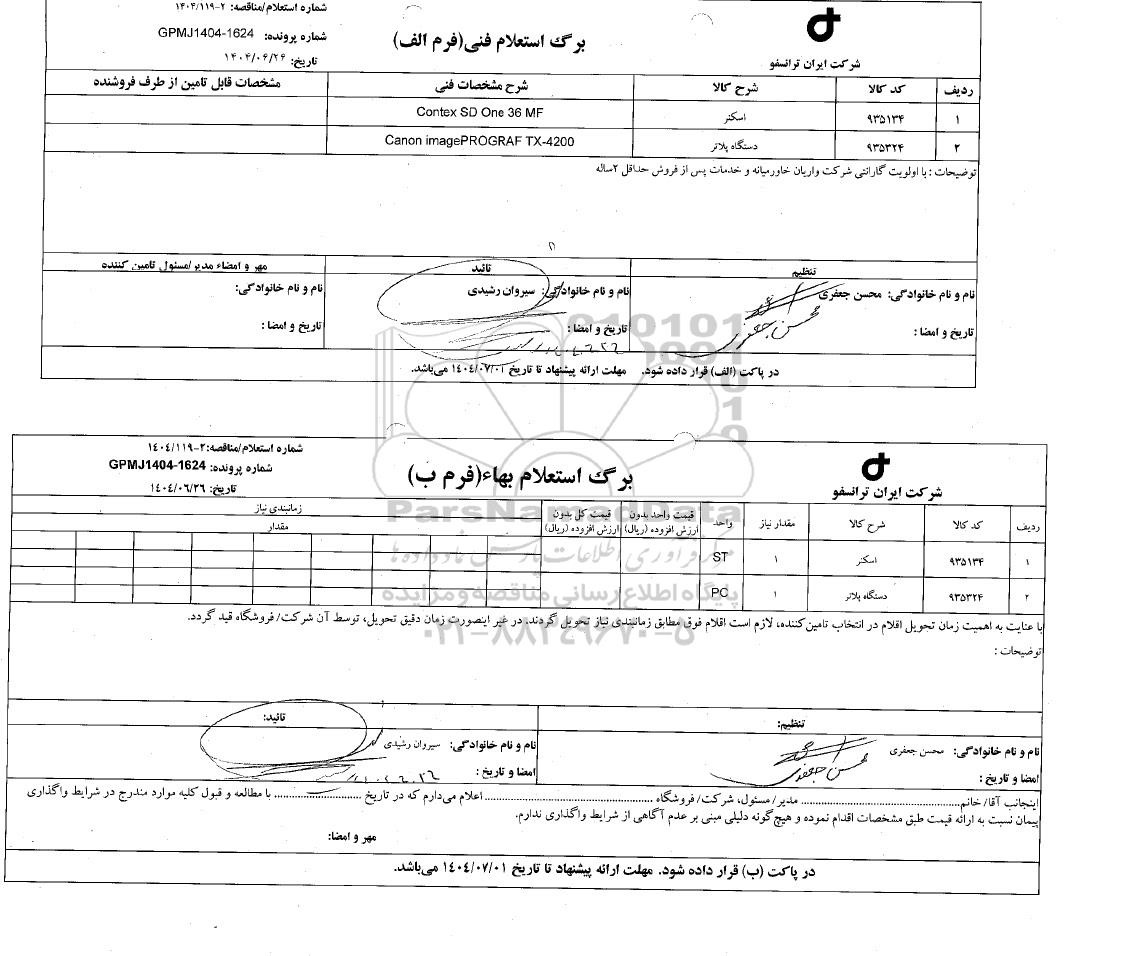 شماره استعلام/مناقصه: ۲-۱۴۰۴/۱۱۹
برگ استعلام فنی(فرم الف)
شماره پرونده: GPMJ1404-1624
شرکت ایران ترانسفو
تاریخ: ۱۴۰۴/۰۶/۲۶
ردیف کد کالا شرح کالا شرح مشخصات فنی مشخصات قابل تامین از طرف فروشنده
۱ ۹۳۵۱۳۴ اسکنر Contex SD One 36 MF
۲ ۹۳۵۳۲۴ دستگاه پلاتر Canon imagePROGRAF TX-4200
توضیحات : با اولویت گارانتی شرکت واریان خاورمیانه و خدمات پس از فروش حداقل ۲ساله
تنظیم تائید مهر و امضاء مدیر/مسئول تامین کننده
نام و نام خانوادگی: محسن جعفری نام و نام خانوادگی: سیروان رشیدی نام و نام خانوادگی:
تاریخ و امضا : محسن جعفری تاریخ و امضا : تاریخ و امضا :
در پاکت (الف) قرار داده شود. مهلت ارائه پیشنهاد تا تاریخ ۱۴۰۴/۰۷/۰۱ می‌باشد.
شماره استعلام/مناقصه:۲-۱۴۰۴/۱۱۹
برگ استعلام بهاء(فرم ب)
شماره پرونده: GPMJ1404-1624
شرکت ایران ترانسفو
تاریخ: ۱۴۰۴/۰۶/۲۶
ردیف کد کالا شرح کالا مقدار نیاز واحد قیمت واحد بدون ارزش افزوده (ریال) قیمت کل بدون ارزش افزوده (ریال) زمانبندی نیاز
مقدار
۱ ۹۳۵۱۳۴ اسکنر ۱ ST
۲ ۹۳۵۳۲۴ دستگاه پلاتر ۱ PC
ParsNamadData
مرکز فرآوری اطلاعات پارس نماد داده‌ها
پایگاه اطلاع رسانی مناقصه و مزایده
۰۲۱-۸۸۳۴۹۶۷۰-۵
با عنایت به اهمیت زمان تحویل اقلام در انتخاب تامین‌کننده، لازم است اقلام فوق مطابق زمانبندی نیاز تحویل گردند. در غیر اینصورت زمان دقیق تحویل، توسط آن شرکت/ فروشگاه قید گردد.
توضیحات :
تنظیم: تائید:
نام و نام خانوادگی: محسن جعفری نام و نام خانوادگی: سیروان رشیدی
امضا و تاریخ : محسن جعفری امضا و تاریخ :
اینجانب آقا/ خانم........................ مدیر/ مسئول، شرکت/ فروشگاه ........................ اعلام می‌دارم که در تاریخ ........................ با مطالعه و قبول کلیه موارد مندرج در شرایط واگذاری
پیمان نسبت به ارائه قیمت طبق مشخصات اقدام نموده و هیچ‌گونه دلیلی مبنی بر عدم آگاهی از شرایط واگذاری ندارم.
مهر و امضا:
در پاکت (ب) قرار داده شود. مهلت ارائه پیشنهاد تا تاریخ ۱۴۰۴/۰۷/۰۱ می‌باشد.